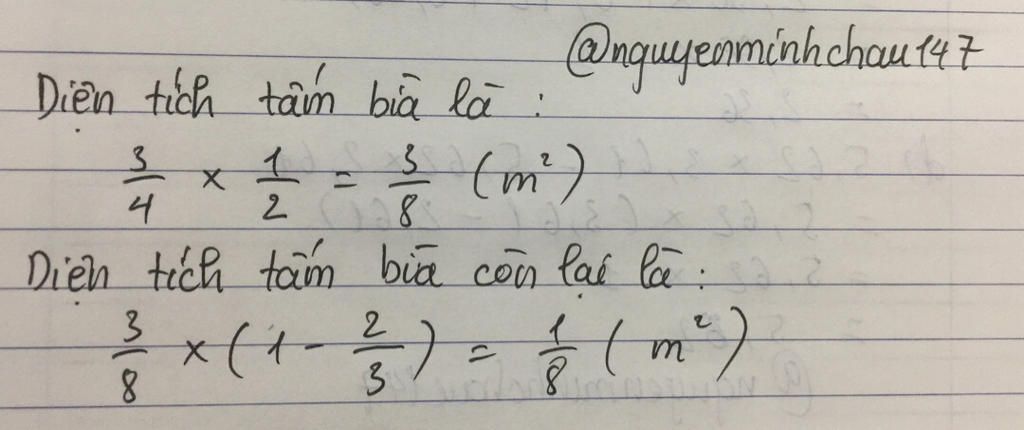 @nguyenminhchau147
Diện tích tấm bìa là :
3/4 × 1/2 = 3/8 (m²)
Diện tích tấm bìa còn lại là :
3/8 × (1 - 2/3) = 1/8 (m²)